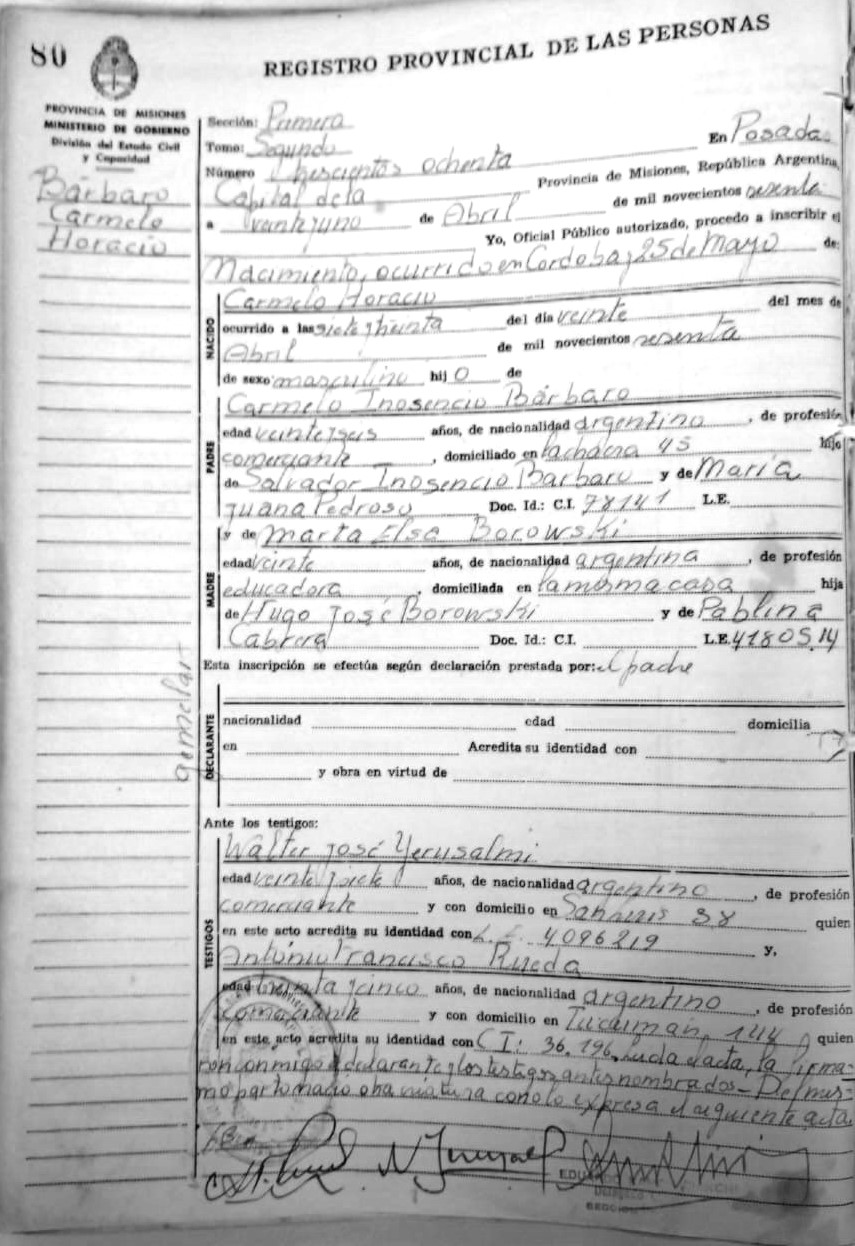 80
REGISTRO PROVINCIAL DE LAS PERSONAS
PROVINCIA DE MISIONES
MINISTERIO DE GOBIERNO
División del Estado Civil
y Capacidad
Bárbaro
Carmelo
Horacio
Sección: Primera
Tomo: Segundo En Posadas
Número trescientos ochenta
Capital de la Provincia de Misiones, República Argentina,
a veintejuno de Abril de mil novecientos sesenta
Yo, Oficial Público autorizado, procedo a inscribir el
Nacimiento, ocurrido en Cordoba y 25 de Mayo de:
NACIDO
Carmelo Horacio
ocurrido a las siete y treinta del día veinte del mes de
Abril de mil novecientos sesenta
de sexo masculino hij o de
PADRE
Carmelo Inosencio Bárbaro
edad veinteyseis años, de nacionalidad argentino, de profesión
comerciante, domiciliado en la chacra 45 hijo
de Salvador Inosencio Bárbaro y de María
Juana Pedroso Doc. Id.: C.I. 78141 L.E.
y de Marta Elsa Borowski
MADRE
edad veinte años, de nacionalidad argentina, de profesión
educadora, domiciliada en la misma casa hija
de Hugo José Borowski y de Pablina
Cabrera Doc. Id.: C.I. L.E. 4180514
Esta inscripción se efectúa según declaración prestada por: el padre
gemelar
DECLARANTE
nacionalidad edad domicilia
en Acredita su identidad con
y obra en virtud de
Ante los testigos:
TESTIGOS
Walter José Yerusalmi
edad veinte y siete años, de nacionalidad argentino, de profesión
comerciante y con domicilio en San Luis 38 quien
en este acto acredita su identidad con L.E. 4096219 y,
Antonio Francisco Rueda
edad treinta y cinco años, de nacionalidad argentino, de profesión
comerciante y con domicilio en Tucumán 144 quien
en este acto acredita su identidad con C I: 36.196. Leída el acta, la firma-
ron conmigo el declarante y los testigos antes nombrados - Del mis-
mo parto nacio otra criatura como lo expresa el siguiente acta.